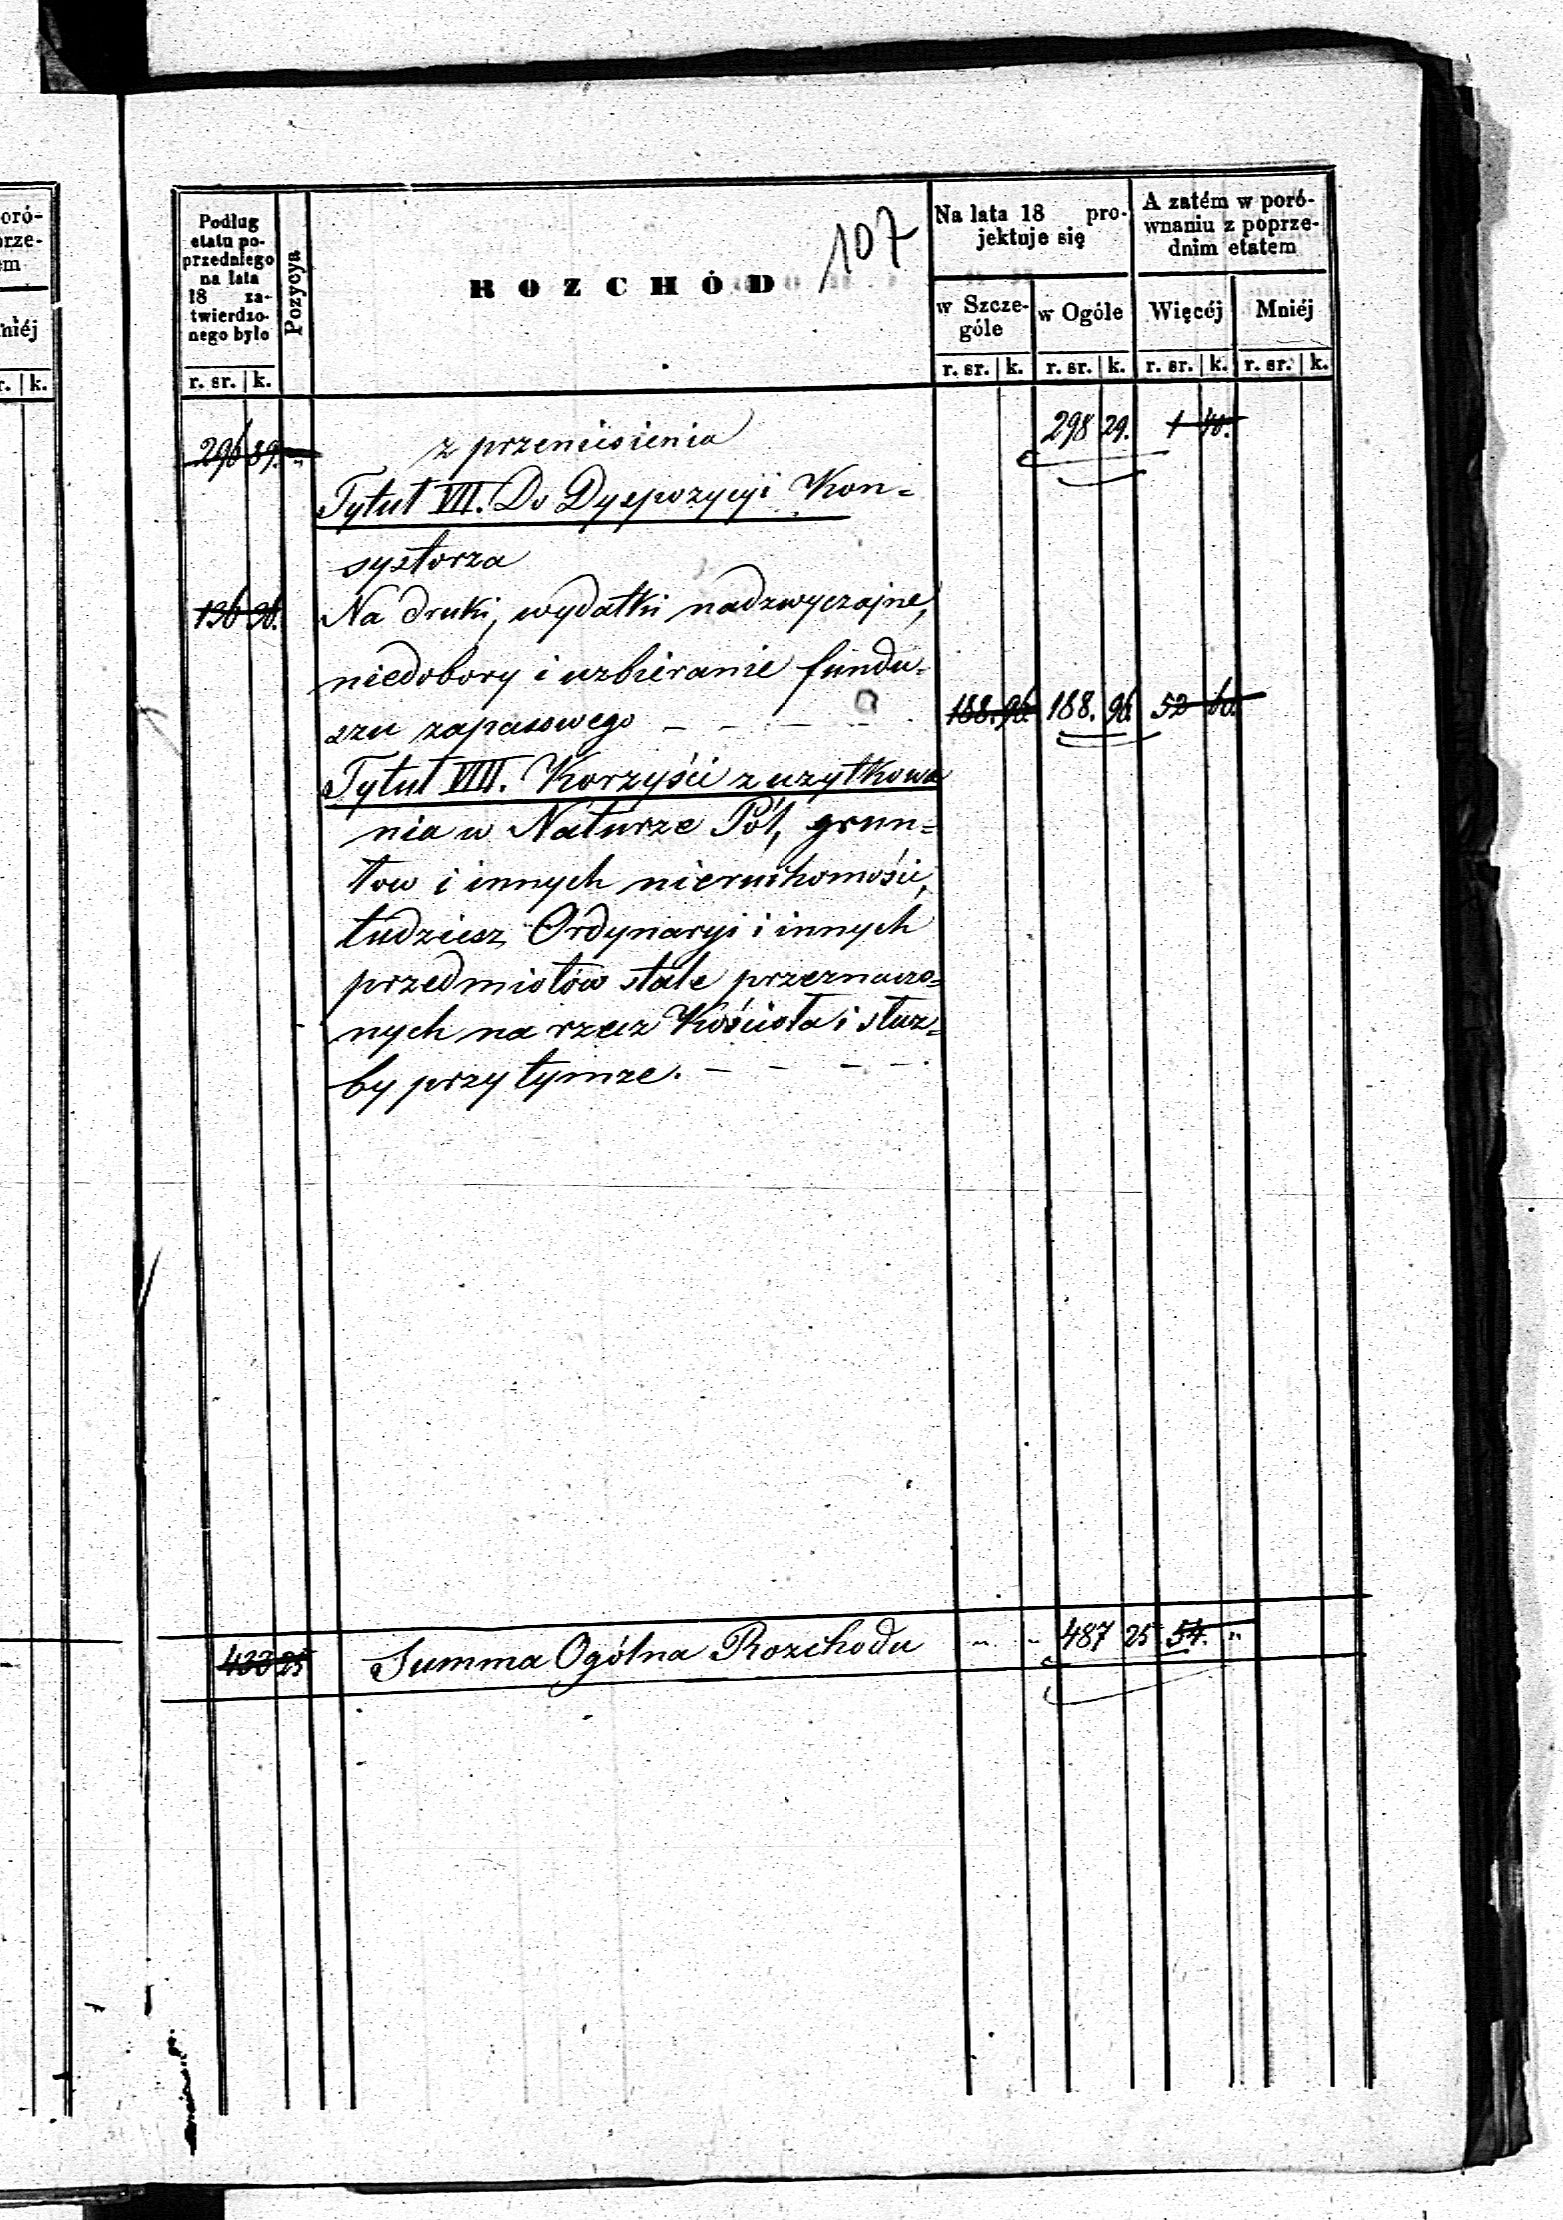 oró-
rze-
em
niéj
r. k.
107
Podług
etatu po-
przedniego
na lata
18 za-
twierdzo-
nego było
r. sr. k.
Pozycya
ROZCHÓD
Na lata 18 pro-
jektuje się
w Szcze-
góle
r. sr. k.
w Ogóle
r. sr. k.
A zatém w poró-
wnaniu z poprze-
dnim etatem
Więcéj
r. sr. k.
Mniéj
r. sr. k.
296 89. „ z przeniesienia 298 29. 1 40.
Tytuł VII. Do Dyspozycyi Kon=
systorza
136 36. Na druki, wydatki nadzwyczajne,
niedobory i uzbieranie fundu=
szu zapasowego – – – – 188. 96. 188. 96. 52 60.
Tytuł VIII. Korzyści z użytkowa
nia w Naturze Pól, grun=
tow i innych nieruchomości,
tudziesz Ordynaryi i innych
przedmiotów stale przeznaczo=
nych na rzecz Kościoła i służ=
by przy tymze. – – – –
433 25 Summa Ogólna Rozchodu „ „ 487 25 54. „